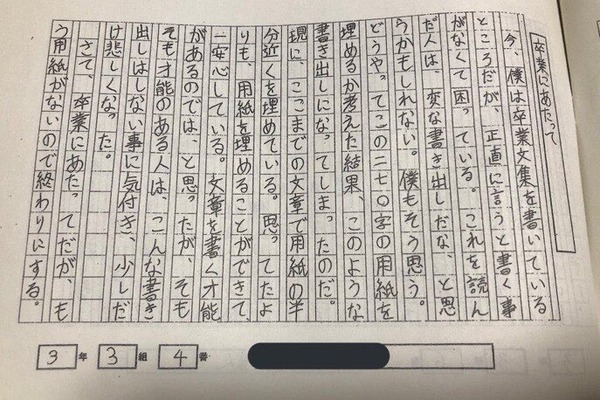 卒業にあたって
今、僕は卒業文集を書いている
ところだが、正直に言うと書く事
がなくて困っている。これを読ん
だ人は、変な書き出しだな、と思
うかもしれない。僕もそう思う。
どうやってこの二七〇字の用紙を
埋めるか考えた結果、このような
書き出しになってしまったのだ。
現に、ここまでの文章で用紙の半
分近くを埋めている。思ってたよ
りも、用紙を埋めることができて、
一安心している。文章を書く才能
があるのでは、と思ったが、そも
そも才能のある人は、こんな書き
出しはしない事に気付き、少しだ
け悲しくなった。
さて、卒業にあたってだが、も
う用紙がないので終わりにする。
3年3組4番